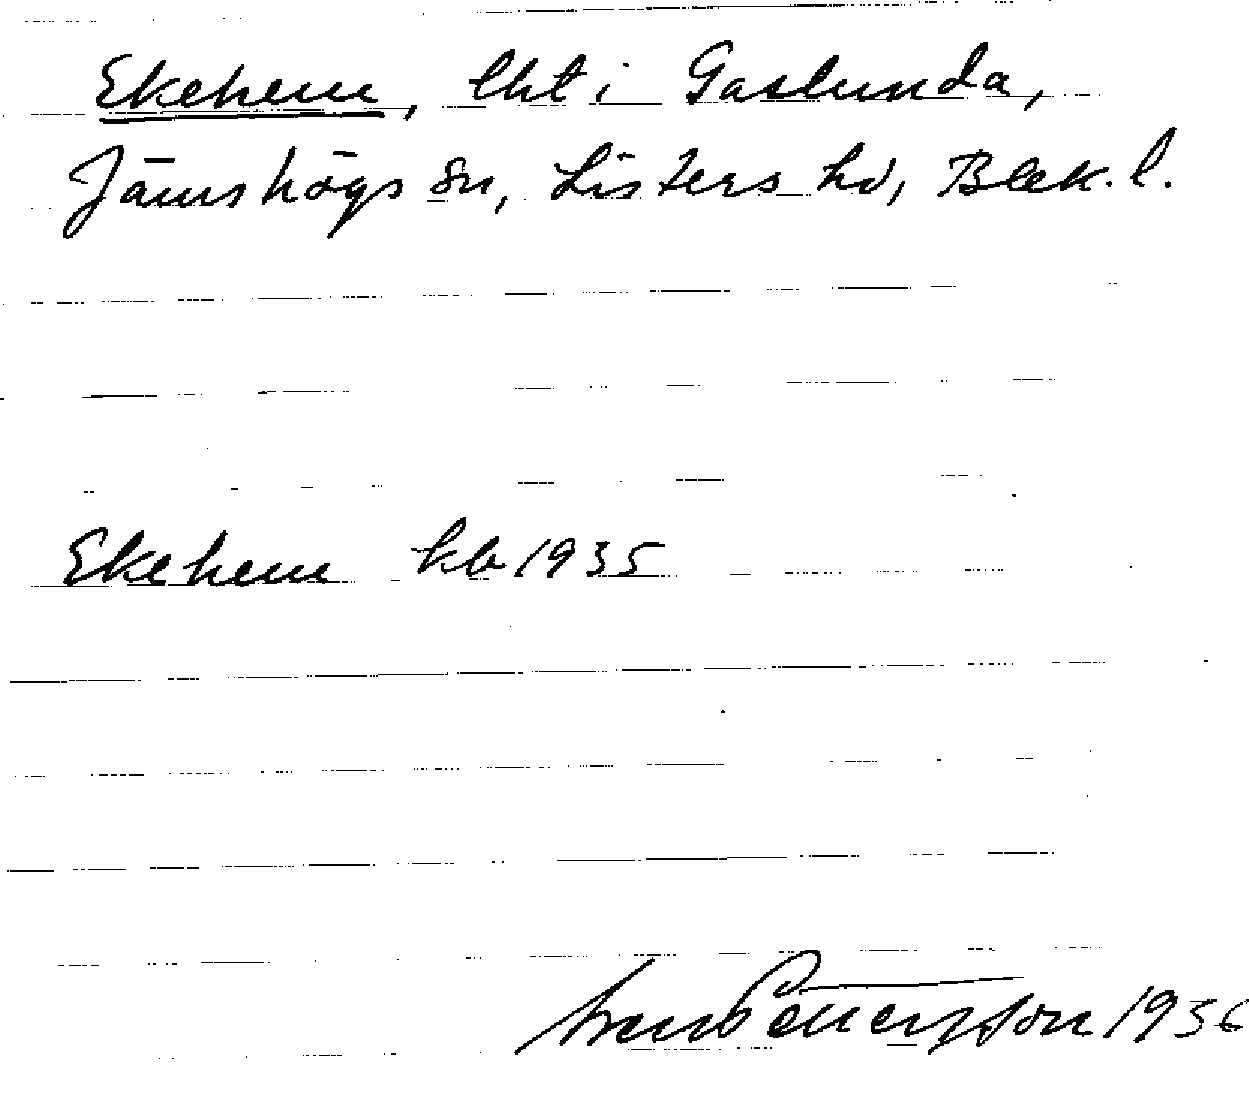 Ekehem, lht i Gaslunda,
Jämshögs sn, Listers hd, Blek. l.
Ekehem kb 1935
Pettersson 1936